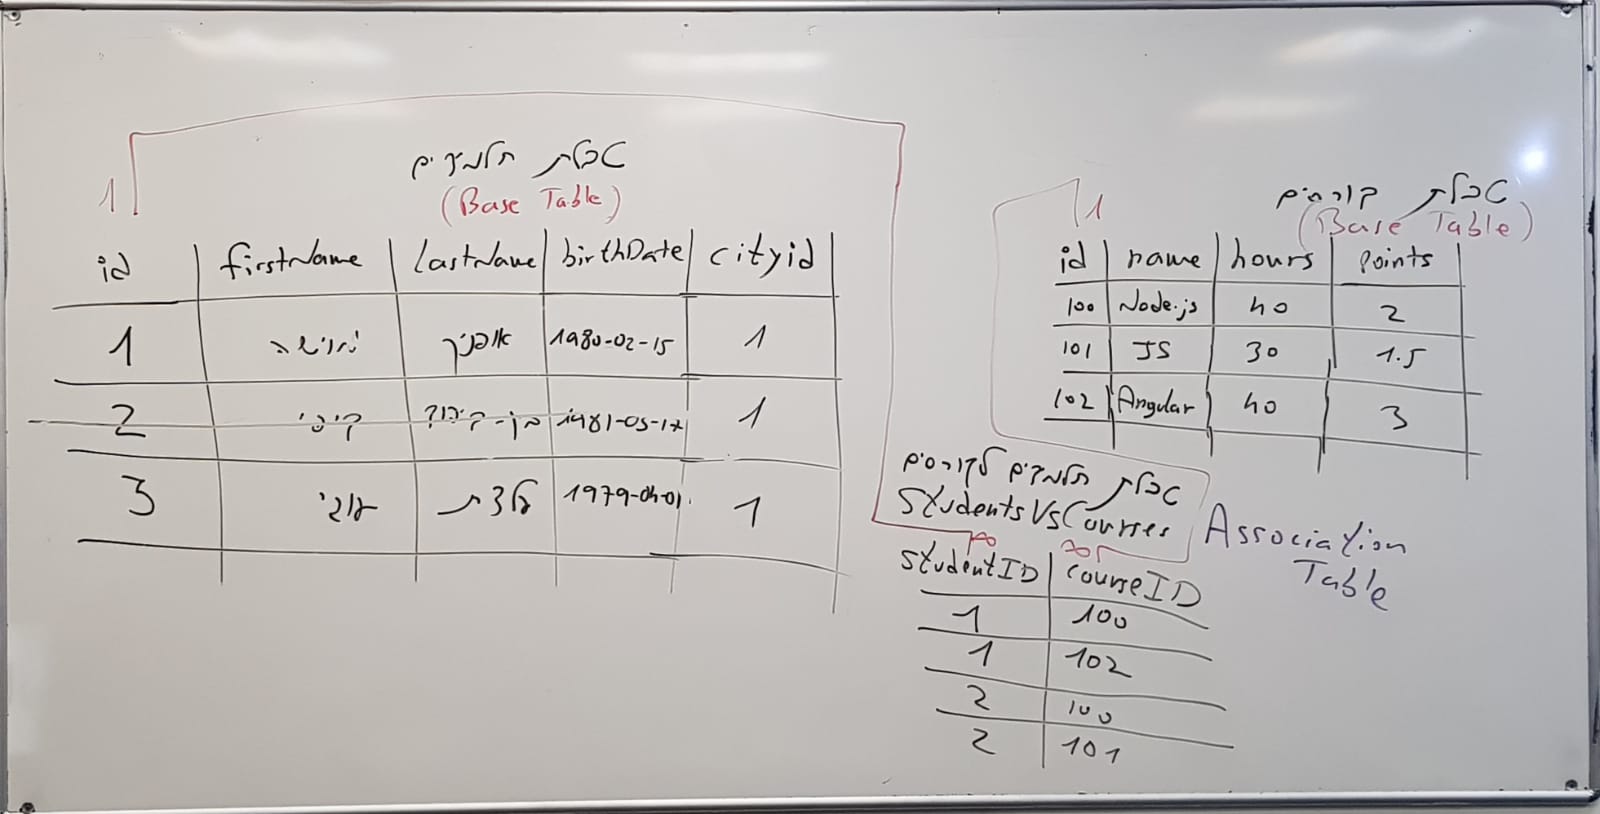 טבלת תלמידים
(Base Table)
1
id firstName lastName birthDate cityid
1 מוישה אופניק 1980-02-15 1
2 קיפי בן-קיפוד 1981-05-17 1
3 1979-04-01 1
טבלת קורסים
(Base Table)
1
id name hours Points
100 Node.js 40 2
101 JS 30 1.5
102 Angular 40 3
טבלת תלמידים לקורסים
StudentsVsCourses
Association
Table
∞ ∞
StudentID courseID
1 100
1 102
2 100
2 101